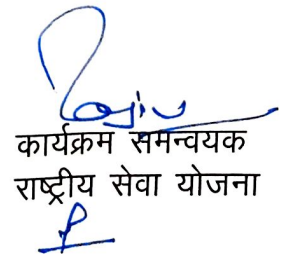 कार्यक्रम समन्वयक
राष्ट्रीय सेवा योजना